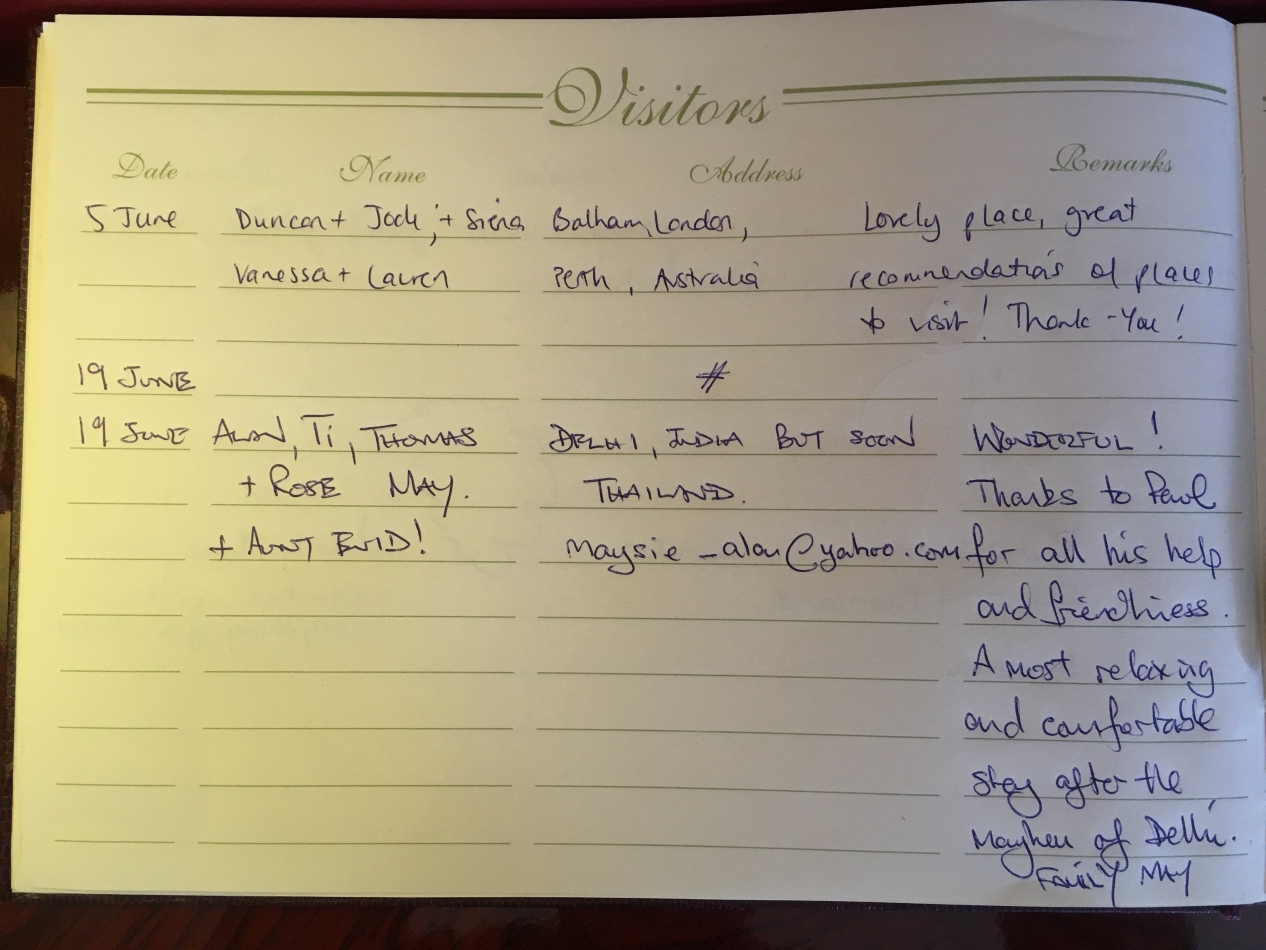 Visitors
Date Name Address Remarks
5 June Duncan + Jodi, + Siena Balham, London, Lovely place, great
Vanessa + Lauren Perth, Australia recommendations of places
to visit! Thank-You!
19 JUNE #
19 JUNE ALAN, Ti, THOMAS DELHI, INDIA BUT SOON WONDERFUL!
+ ROSE MAY. THAILAND. Thanks to Paul
+ AUNT BRID! maysie_alan@yahoo.com for all his help
and friendliness.
A most relaxing
and comfortable
stay after the
Mayhem of Delhi.
FAMILY MAY